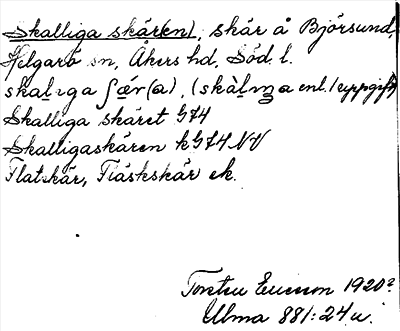 Skalliga skäre(n), skär å Björsund,
Helgarö sn, Åkers hd, Söd. l.
skaḷıga ʃæ̣r(a), (skàḷma enl. uppgift)
Skalliga skäret G74
Skalligaskären kG74 NV
Flatskär, Fläskskär ek.
Torsten Ericsson 1920?
Ulma 881:24 u.